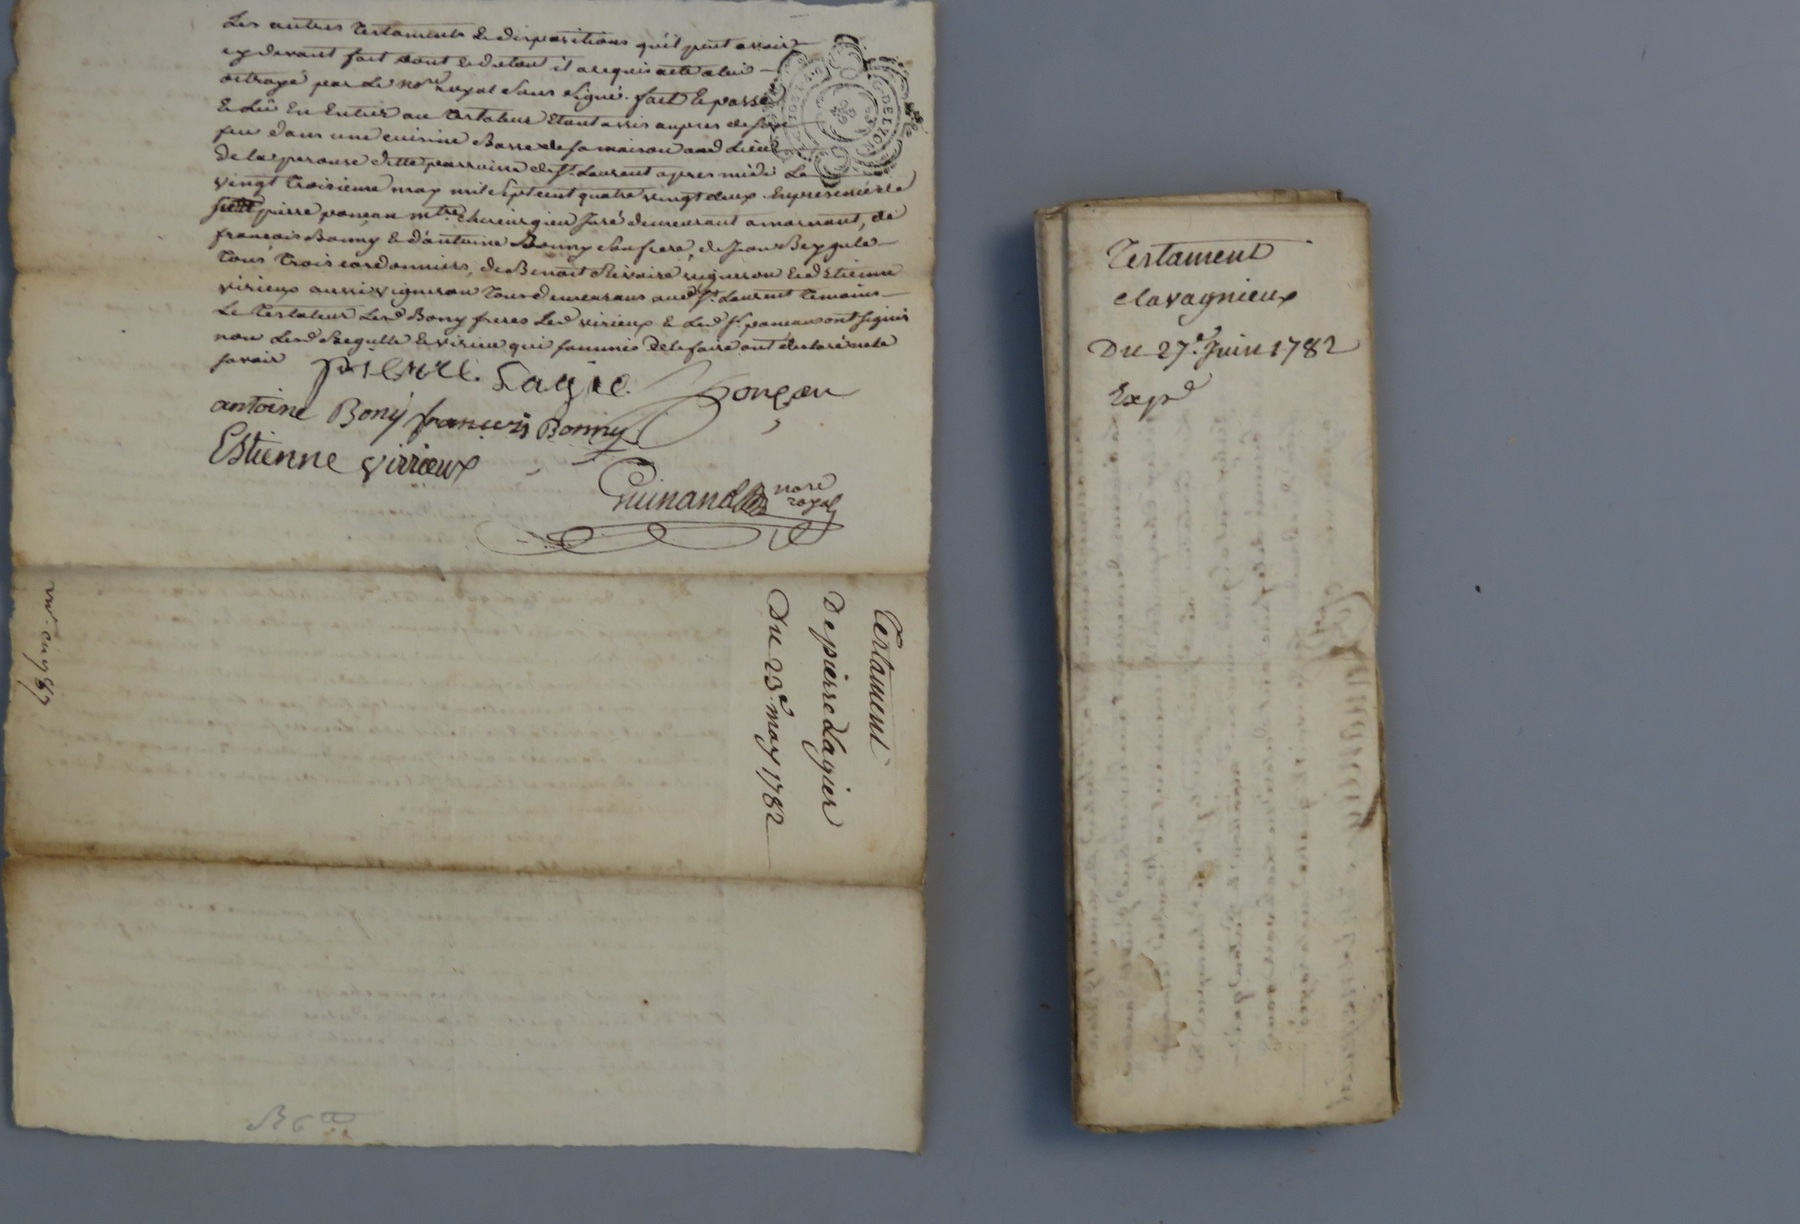 Les autres Testaments & dispositions qu'il peut avoir
cy devant fait dont & du tout il a requis acte a lui
octroyé par Le Nore Royal Sous signé. fait & passé
& Lû En Entier au Testateur Etant assis aupres de son
feu dans une cuisine Basse de sa maison aud Lieu
de la perouse ditte parroisse de St. Laurent apres midi Le
vingt troisieme may mil sept cent quatre vingt deux En présence de
pierre poncan mtre chirurgien Juré demeurant a mornant, de
françois Bonny & d'antoine Bonny son frere, de Jean Bezgule
tous trois cordonniers, de Benoit vigneron & d'Etienne
virieux aussi vigneron Tous demeurans aud St. Laurent temoins
Le Testateur Lesd Bony freres Led virieux & Led Sr. poncan ont signés
non Lesd & qui sommés de le faire ont déclaré ne le
savoir
pierre Lagie. Ponçan
antoine Bony françois Bonny
Estienne virieux
Guinand nore
royal
Testament
De pierre Lagier
Du 23e. may 1782
R 6tt
Testament
clavagnieux
Du 27e. Juin 1782
Expd